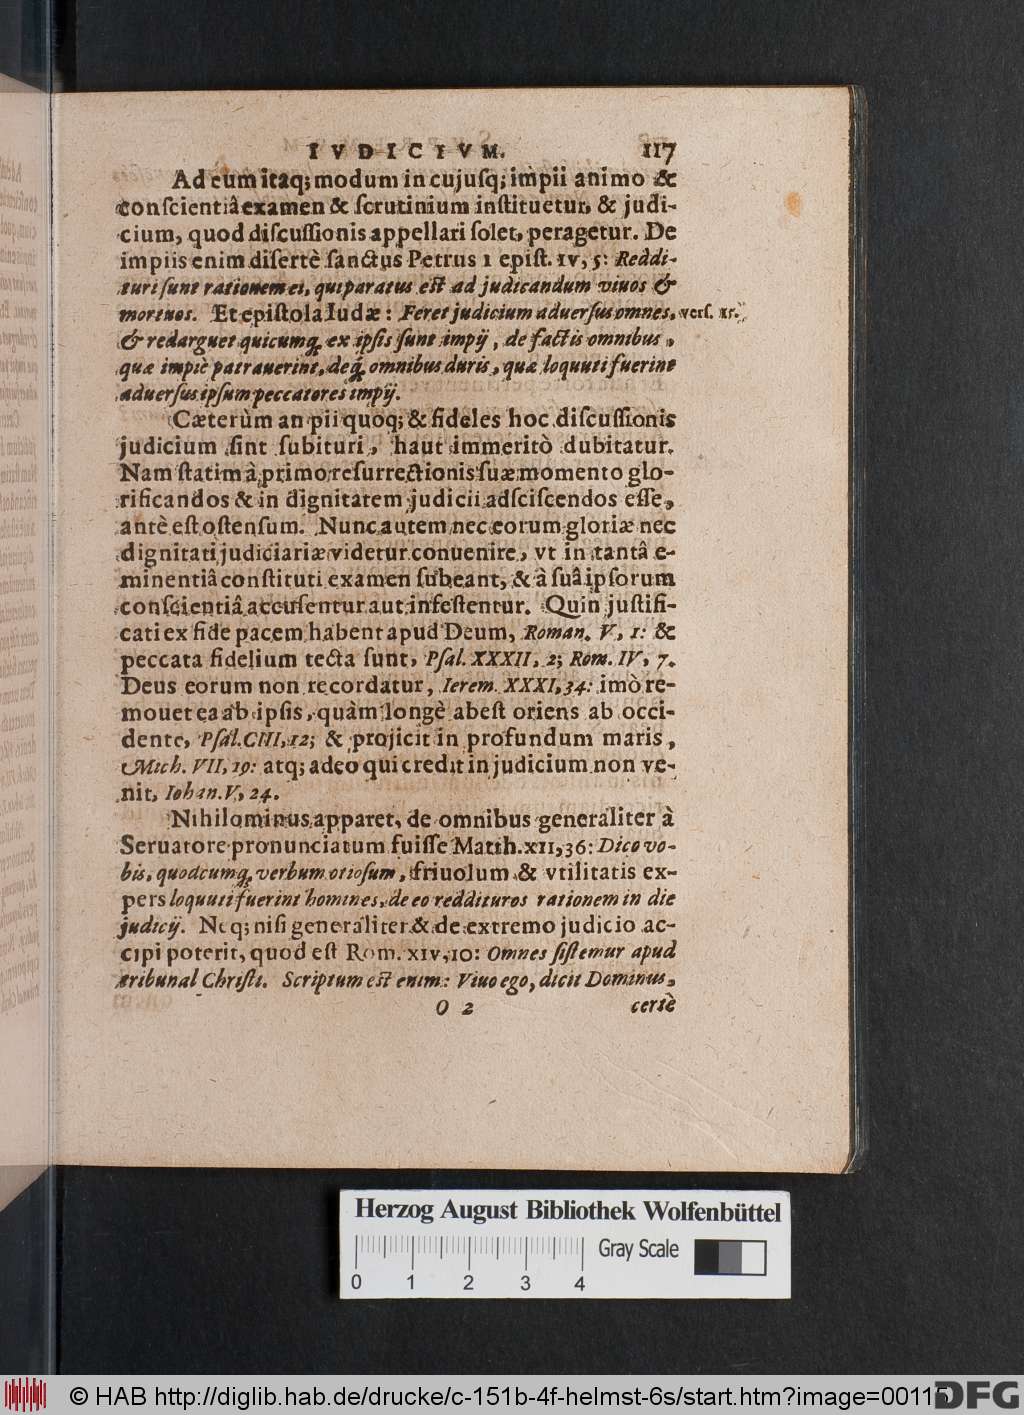 IVDICIVM. 117
Ad eum itaq; modum in cujusq; impii animo &
conſcientiâ examen & ſcrutinium inſtituetur, & judi-
cium, quod diſcuſſionis appellari ſolet, peragetur. De
impiis enim diſertè ſanctus Petrus 1 epiſt. IV, 5: Reddi-
turi ſunt rationem ei, qui paratus eſt ad judicandum viuos &
mortuos. Et epiſtola Iudæ: Feret judicium aduerſus omnes, verſ. 15.
& redarguet quicumq; ex ipſis ſunt impij, de factis omnibus,
quæ impiè patrauerint, deq; omnibus duris, quæ loquuti fuerint
aduerſus ipſum peccatores impij.
Cæterùm an pii quoq; & fideles hoc diſcuſſionis
judicium ſint ſubituri, haut immeritò dubitatur.
Nam ſtatim à primo reſurrectionis ſuæ momento glo-
rificandos & in dignitatem judicii adſciſcendos eſſe,
antè eſt oſtenſum. Nunc autem nec eorum gloriæ nec
dignitati judiciariæ videtur conuenire, vt in tantâ e-
minentiâ conſtituti examen ſubeant, & à ſuâ ipſorum
conſcientiâ accuſentur aut infeſtentur. Quin juſtifi-
cati ex fide pacem habent apud Deum, Roman. V, 1: &
peccata fidelium tecta ſunt, Pſal. XXXII, 2; Rom. IV, 7.
Deus eorum non recordatur, Ierem. XXXI, 34: imò re-
mouet ea ab ipſis, quàm longè abeſt oriens ab occi-
dente, Pſal. CIII, 12; & projicit in profundum maris,
Mich. VII, 19: atq; adeo qui credit in judicium non ve-
nit, Iohan. V, 24.
Nihilominus apparet, de omnibus generaliter à
Seruatore pronunciatum fuiſſe Matth. XII, 36: Dico vo-
bis, quodcumq; verbum otioſum, friuolum & vtilitatis ex-
pers loquuti fuerint homines, de eo reddituros rationem in die
judicij. Neq; niſi generaliter & de extremo judicio ac-
cipi poterit, quod eſt Rom. XIV, 10: Omnes ſiſtemur apud
tribunal Chriſti. Scriptum eſt enim: Viuo ego, dicit Dominus,
O 2 certè
Herzog August Bibliothek Wolfenbüttel
0 1 2 3 4 Gray Scale
© HAB http://diglib.hab.de/drucke/c-151b-4f-helmst-6s/start.htm?image=00115
DFG